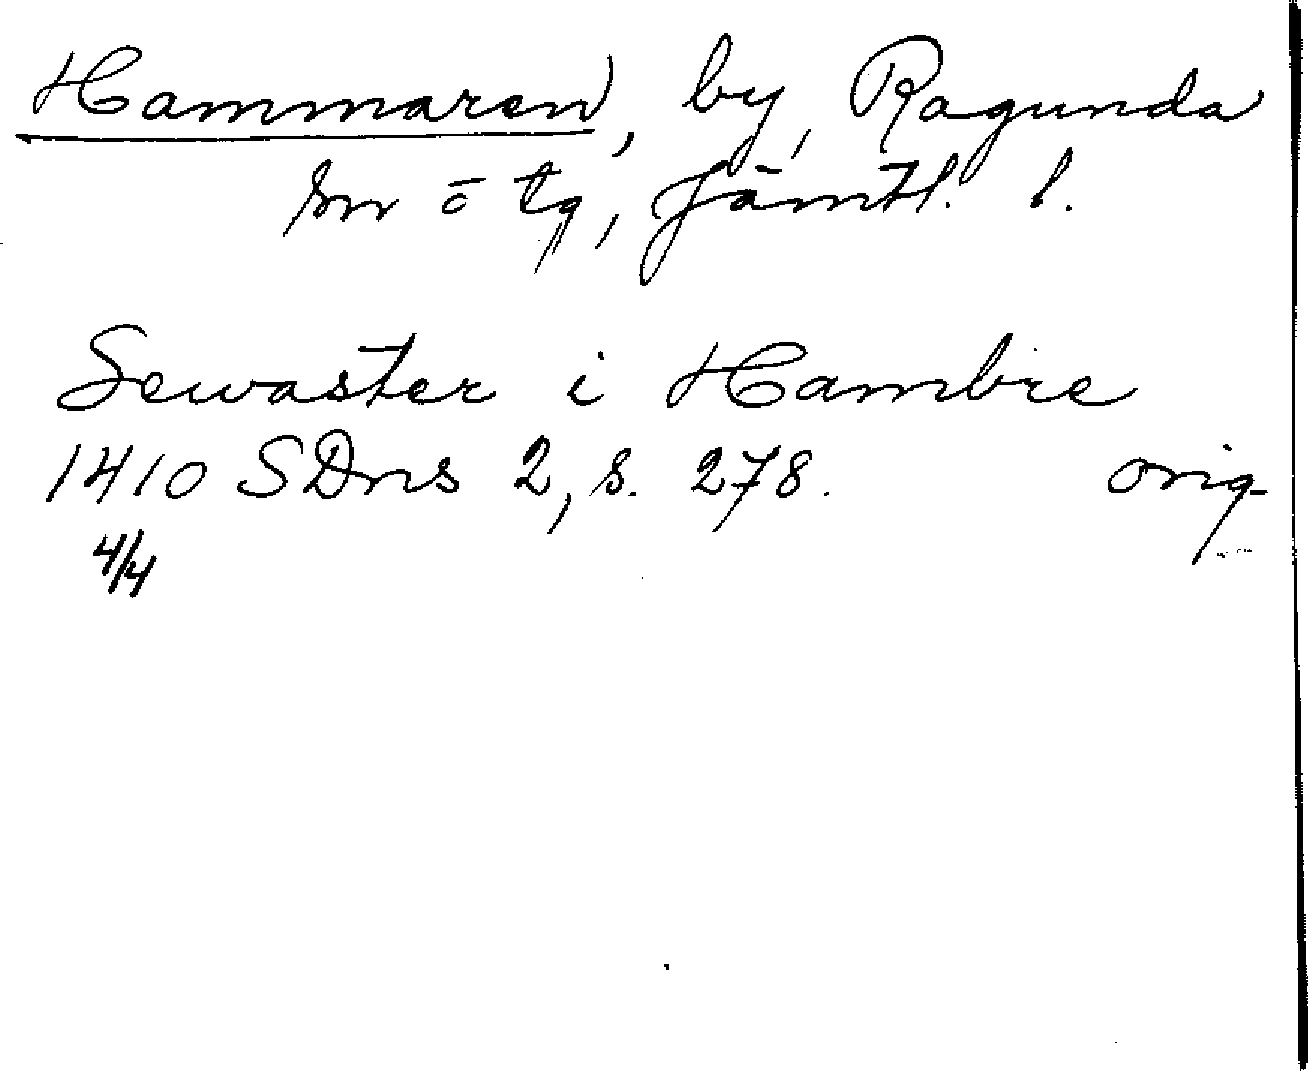 Hammaren, by, Ragunda
sn ō tg, Jämtl. l.
Sewaster i Hambre
1410 SDns 2, s. 278. orig.
4/4